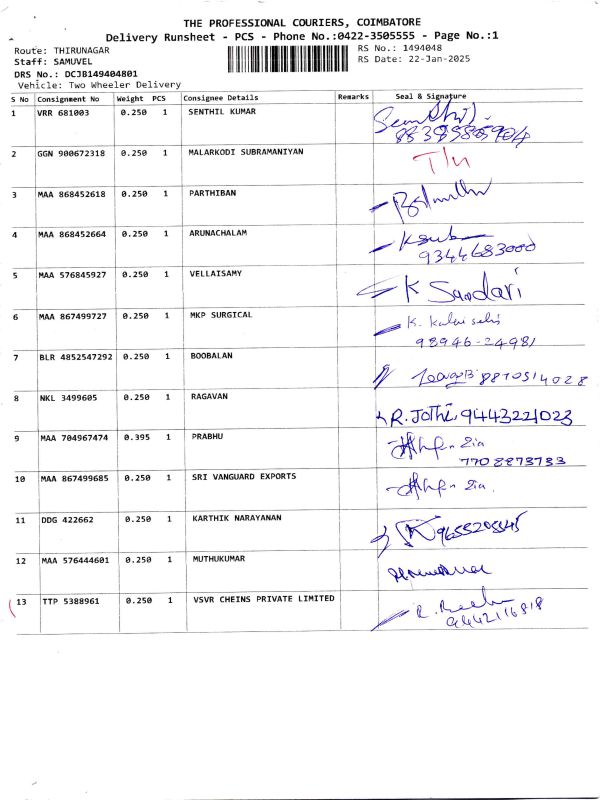 THE PROFESSIONAL COURIERS, COIMBATORE
Delivery Runsheet - PCS - Phone No.:0422-3505555 - Page No.:1
Route: THIRUNAGAR RS No.: 1494048
Staff: SAMUVEL RS Date: 22-Jan-2025
DRS No.: DCJB149404801
Vehicle: Two Wheeler Delivery
S No Consignment No Weight PCS Consignee Details Remarks Seal & Signature
1 VRR 681003 0.250 1 SENTHIL KUMAR
2 GGN 900672318 0.250 1 MALARKODI SUBRAMANIYAN
3 MAA 868452618 0.250 1 PARTHIBAN
4 MAA 868452664 0.250 1 ARUNACHALAM
9344683000
5 MAA 576845927 0.250 1 VELLAISAMY K Sundari
6 MAA 867499727 0.250 1 MKP SURGICAL K. Kalai selvi
98946-24981
7 BLR 4852547292 0.250 1 BOOBALAN 8870514028
8 NKL 3499605 0.250 1 RAGAVAN R. Jothi 9443221023
9 MAA 704967474 0.395 1 PRABHU
7708873733
10 MAA 867499685 0.250 1 SRI VANGUARD EXPORTS
11 DDG 422662 0.250 1 KARTHIK NARAYANAN 9655205545
12 MAA 576444601 0.250 1 MUTHUKUMAR
13 TTP 5388961 0.250 1 VSVR CHEINS PRIVATE LIMITED
9442116818